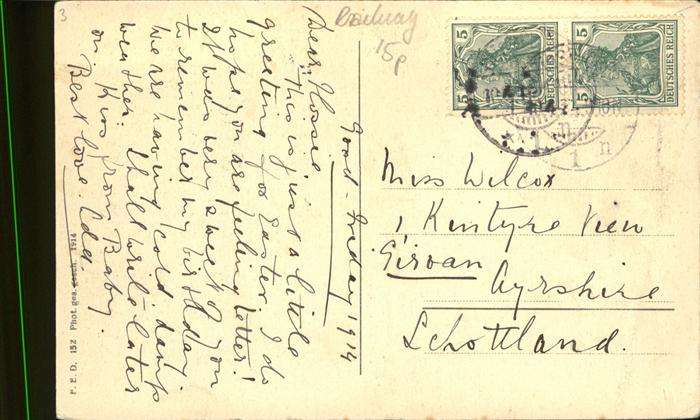 3
Railway
15p
Good-Friday 1914
Dear Flossie,
This is just a little
greeting for Easter. I do
hope you are feeling better!
It was very sweet of you
to remember my birthday.
We are having cold, damp
weather. Shall write later
on. Kiss from Baby.
Best love. Ada.
P. E. D. 152 Phot. ges. gesch. 1914
5 5
DEUTSCHES REICH
5 5
DEUTSCHES REICH
Miss Wilcox
1, Kintyre View
Girvan Ayrshire
Schottland.